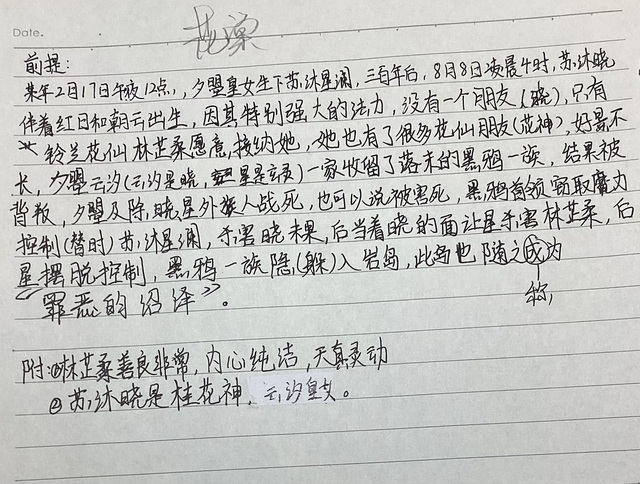 Date.
花深
前提:
某年2月17日午夜12点,夕曌皇女生下苏沐星澜,三百年后,8月8日凌晨4时,苏沐晓
伴着红日和朝云出生,因其特别强大的法力,没有一个朋友(晓),只有
铃兰花仙林芷柔愿意接纳她,她也有了很多花仙朋友(花神),好景不
长,夕曌云汐(云汐是晓,星是玄)一家收留了落末的黑鸦一族,结果被
背叛,夕曌及除晓星外族人战死,也可以说被害死,黑鸦首领窃取魔力
控制(替时)苏沐星澜,手害晓未果,后当着晓的面让星手害林芷柔,后
星摆脱控制,黑鸦一族隐(躲)入岩岛,此岛也随之成为
称,
“罪恶的绍泽”。
附:①林芷柔善良非常,内心纯洁,天真灵动
②苏沐晓是桂花神,云汐皇女。